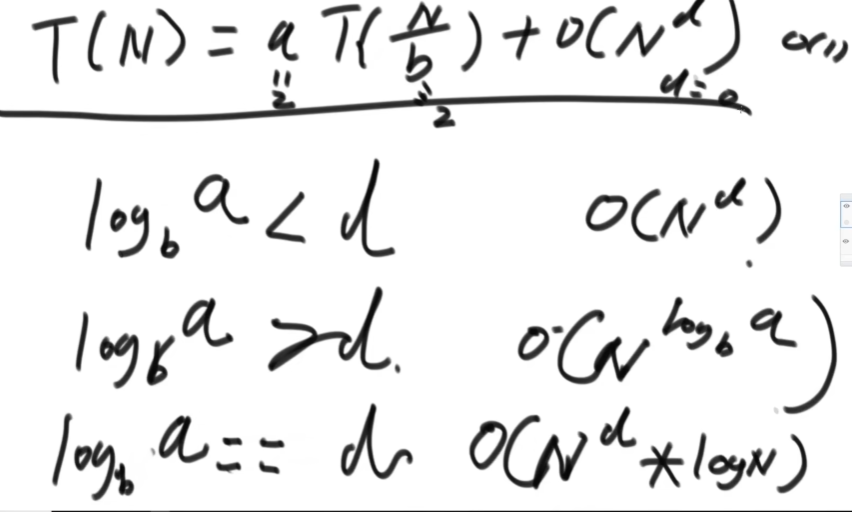 T(N) = a T(N/b) + O(N^d)
"2 "2 d=0
log_b a < d O(N^d)
log_b a > d. O(N^log_b a)
log_b a == d O(N^d * logN)